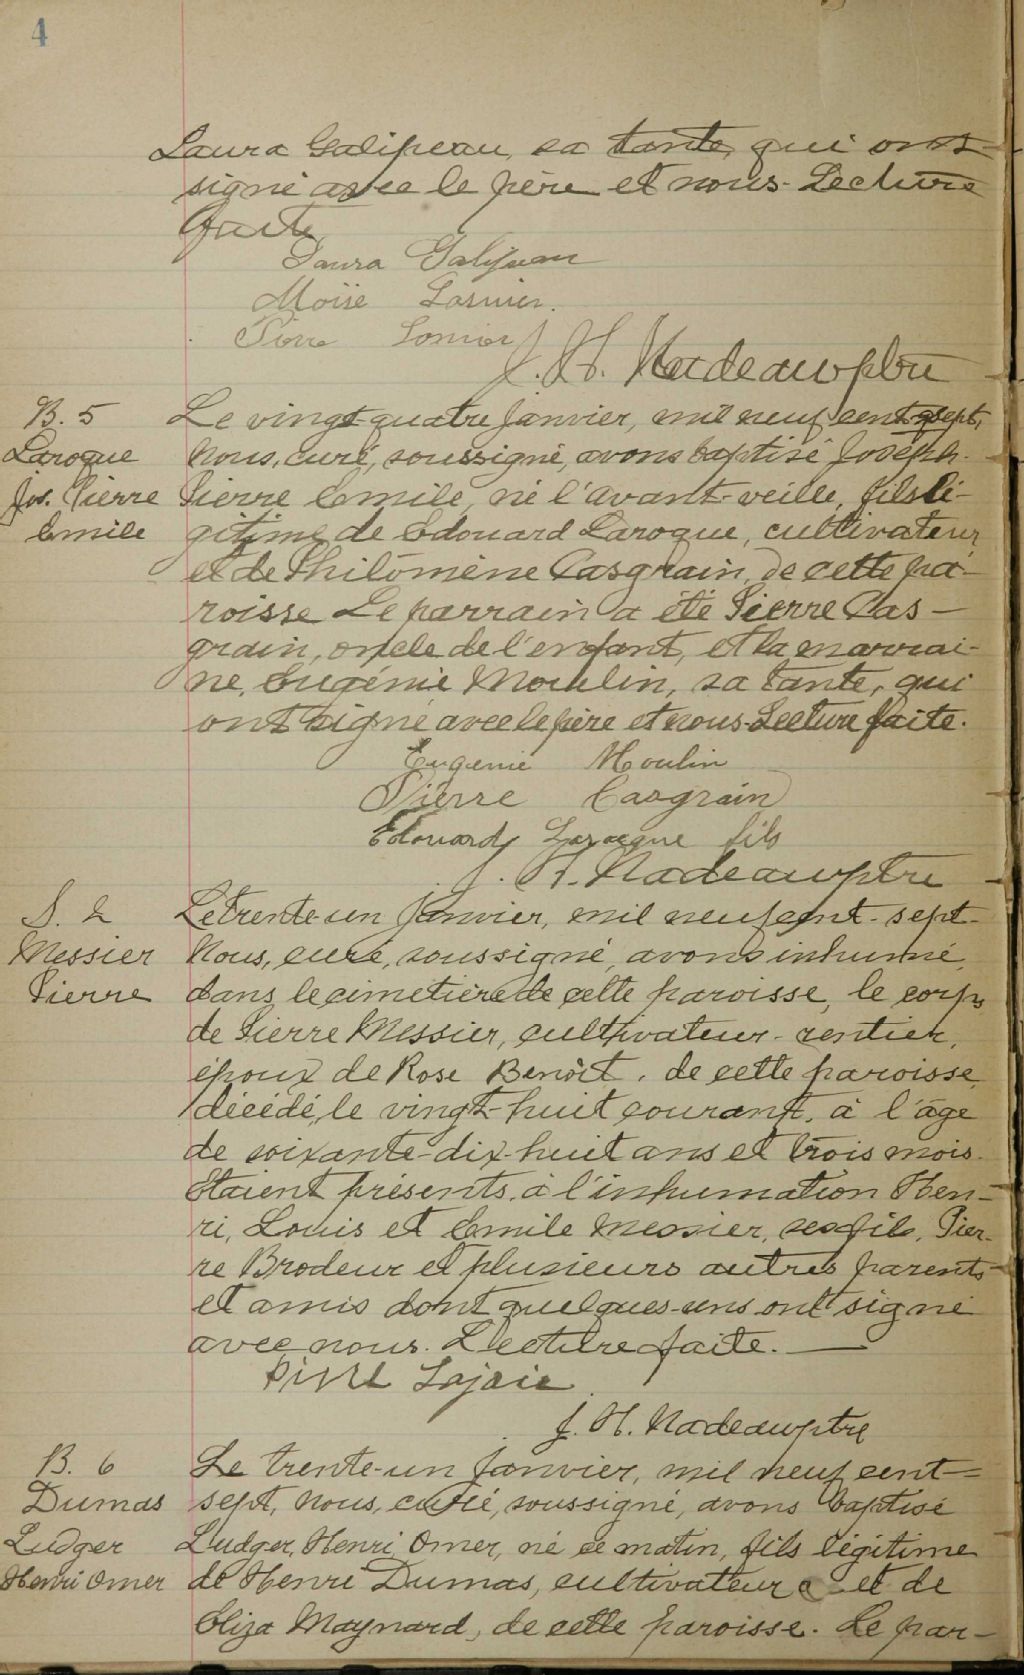 4
Laura Galipeau, sa tante, qui ont
signé avec le père et nous. Lecture
faite.
Laura Galipeau
Moïse Lasnier.
Pierre
J. H. Nadeau ptre
B. 5
Laroque
Jos. Pierre
Emile
Le vingt-quatre janvier, mil neuf cent-sept,
Nous, curé, soussigné, avons baptisé Joseph-
Pierre Emile, né l'avant-veille, fils lé-
gitime de Edouard Laroque, cultivateur
et de Philomène Casgrain, de cette pa-
roisse Le parrain a été Pierre Cas-
grain, oncle de l'enfant, et la marrai-
ne, Eugénie Moulin, sa tante, qui
ont signé avec le père et nous. Lecture faite.
Eugenie Moulin
Pierre Casgrain
Edouard Larocque fils
J. H. Nadeau ptre
S. 2
Messier
Pierre
Le trente-un janvier, mil neuf cent-sept-
Nous, curé, soussigné, avons inhumé,
dans le cimetière de cette paroisse, le corps
de Pierre Messier, cultivateur-rentier,
époux de Rose Benoît, de cette paroisse,
décédé, le vingt-huit courant, à l'âge
de soixante-dix-huit ans et trois mois.
Etaient présents, à l'inhumation Hen-
ri, Louis et Emile Messier, ses fils, Pier-
re Brodeur et plusieurs autres parents
et amis dont quelques-uns ont signé
avec nous. Lecture faite.
Pierre Lajoie
J. H. Nadeau ptre
B. 6
Dumas
Ludger
Henri Omer
Le trente-un janvier, mil neuf cent=
sept, nous, curé, soussigné, avons baptisé
Ludger, Henri Omer, né ce matin, fils légitime
de Henri Dumas, cultivateur et de
Eliza Maynard, de cette paroisse. Le par-